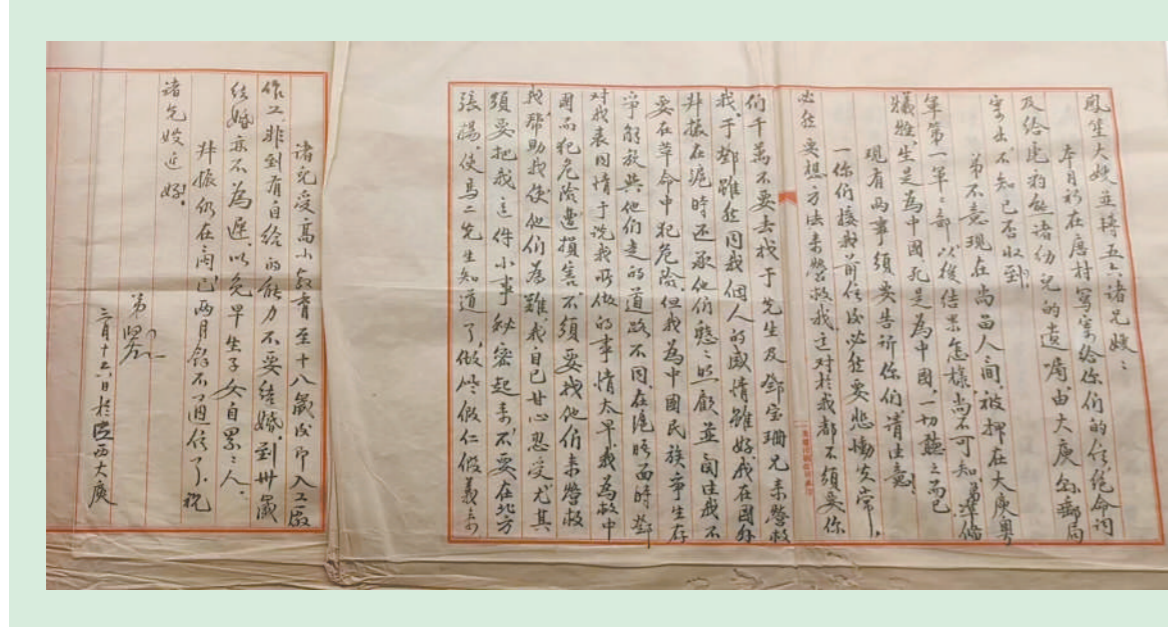 凤笙大嫂并转五六诸兄嫂:
本月初在唐村写寄给你们的信绝命词
及给虎豹熊诸幼儿的遗嘱由大庾县邮局
寄出不知已否收到
弟不意现在尚留人间,被押在大庾粤
军第一军军部,以后结果怎样,尚不可知,弟准备
牺牲,生是为中國,死是为中國,一切聽之而已
现有两事须要告诉你们请注意,
一你们接我前信後必然要悲慟失常,
必然要想方法来營救我,这对於我都不须要你
们千萬不要去找于先生及鄧宝珊兄来營救
我,于鄧雖然同我個人的感情雖好,我在國外
叔振在滬時还承他们慇慇照顧並关注我不
要在革命中犯危險,但我为中國民族争生存
争解放與他们走的道路不同,在滬晤面時鄧
对我表同情于说我所做的事情太早,我为救中
國而犯危險遭損害不须要找他们来營救
我帮助我使他们为難,我自己甘心忍受尤其
须要把我这件小事秘密起来,不要在北方
張揚,使馬二先生知道了,做些假仁假義来
诸兒受高小教育至十八歲後即入工廠
作工,非到有自给的能力不要结婚,到卅歲
结婚亦不为遲,以免早生子女自累累人.
叔振仍在闽已两月餘不通信了.祝
诸兄嫂近好!
弟 堅
三月十六日於江西大庾